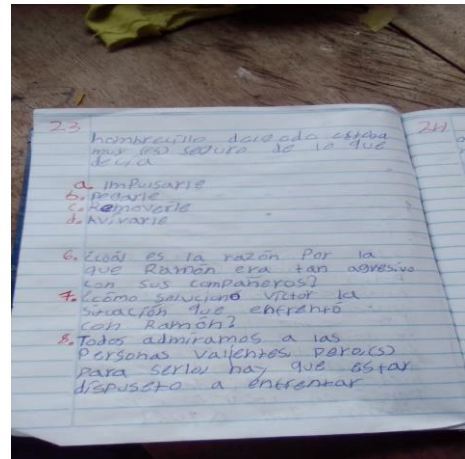 23
hombrecillo dorado estaba
muy (es) seguro de lo que
decía
a. Impulsarle
b. pegarle
c. Removerle
d. Avivarle
6. ¿cuál es la razón Por la
que Ramón era tan agresivo
con sus compañeros?
7. ¿cómo solucionó Víctor la
situación que enfrentó
con Ramón?
8. Todos admiramos a las
Personas valientes, pero,(s)
para serlo, hay que estar
dispuseto a enfrentar
24